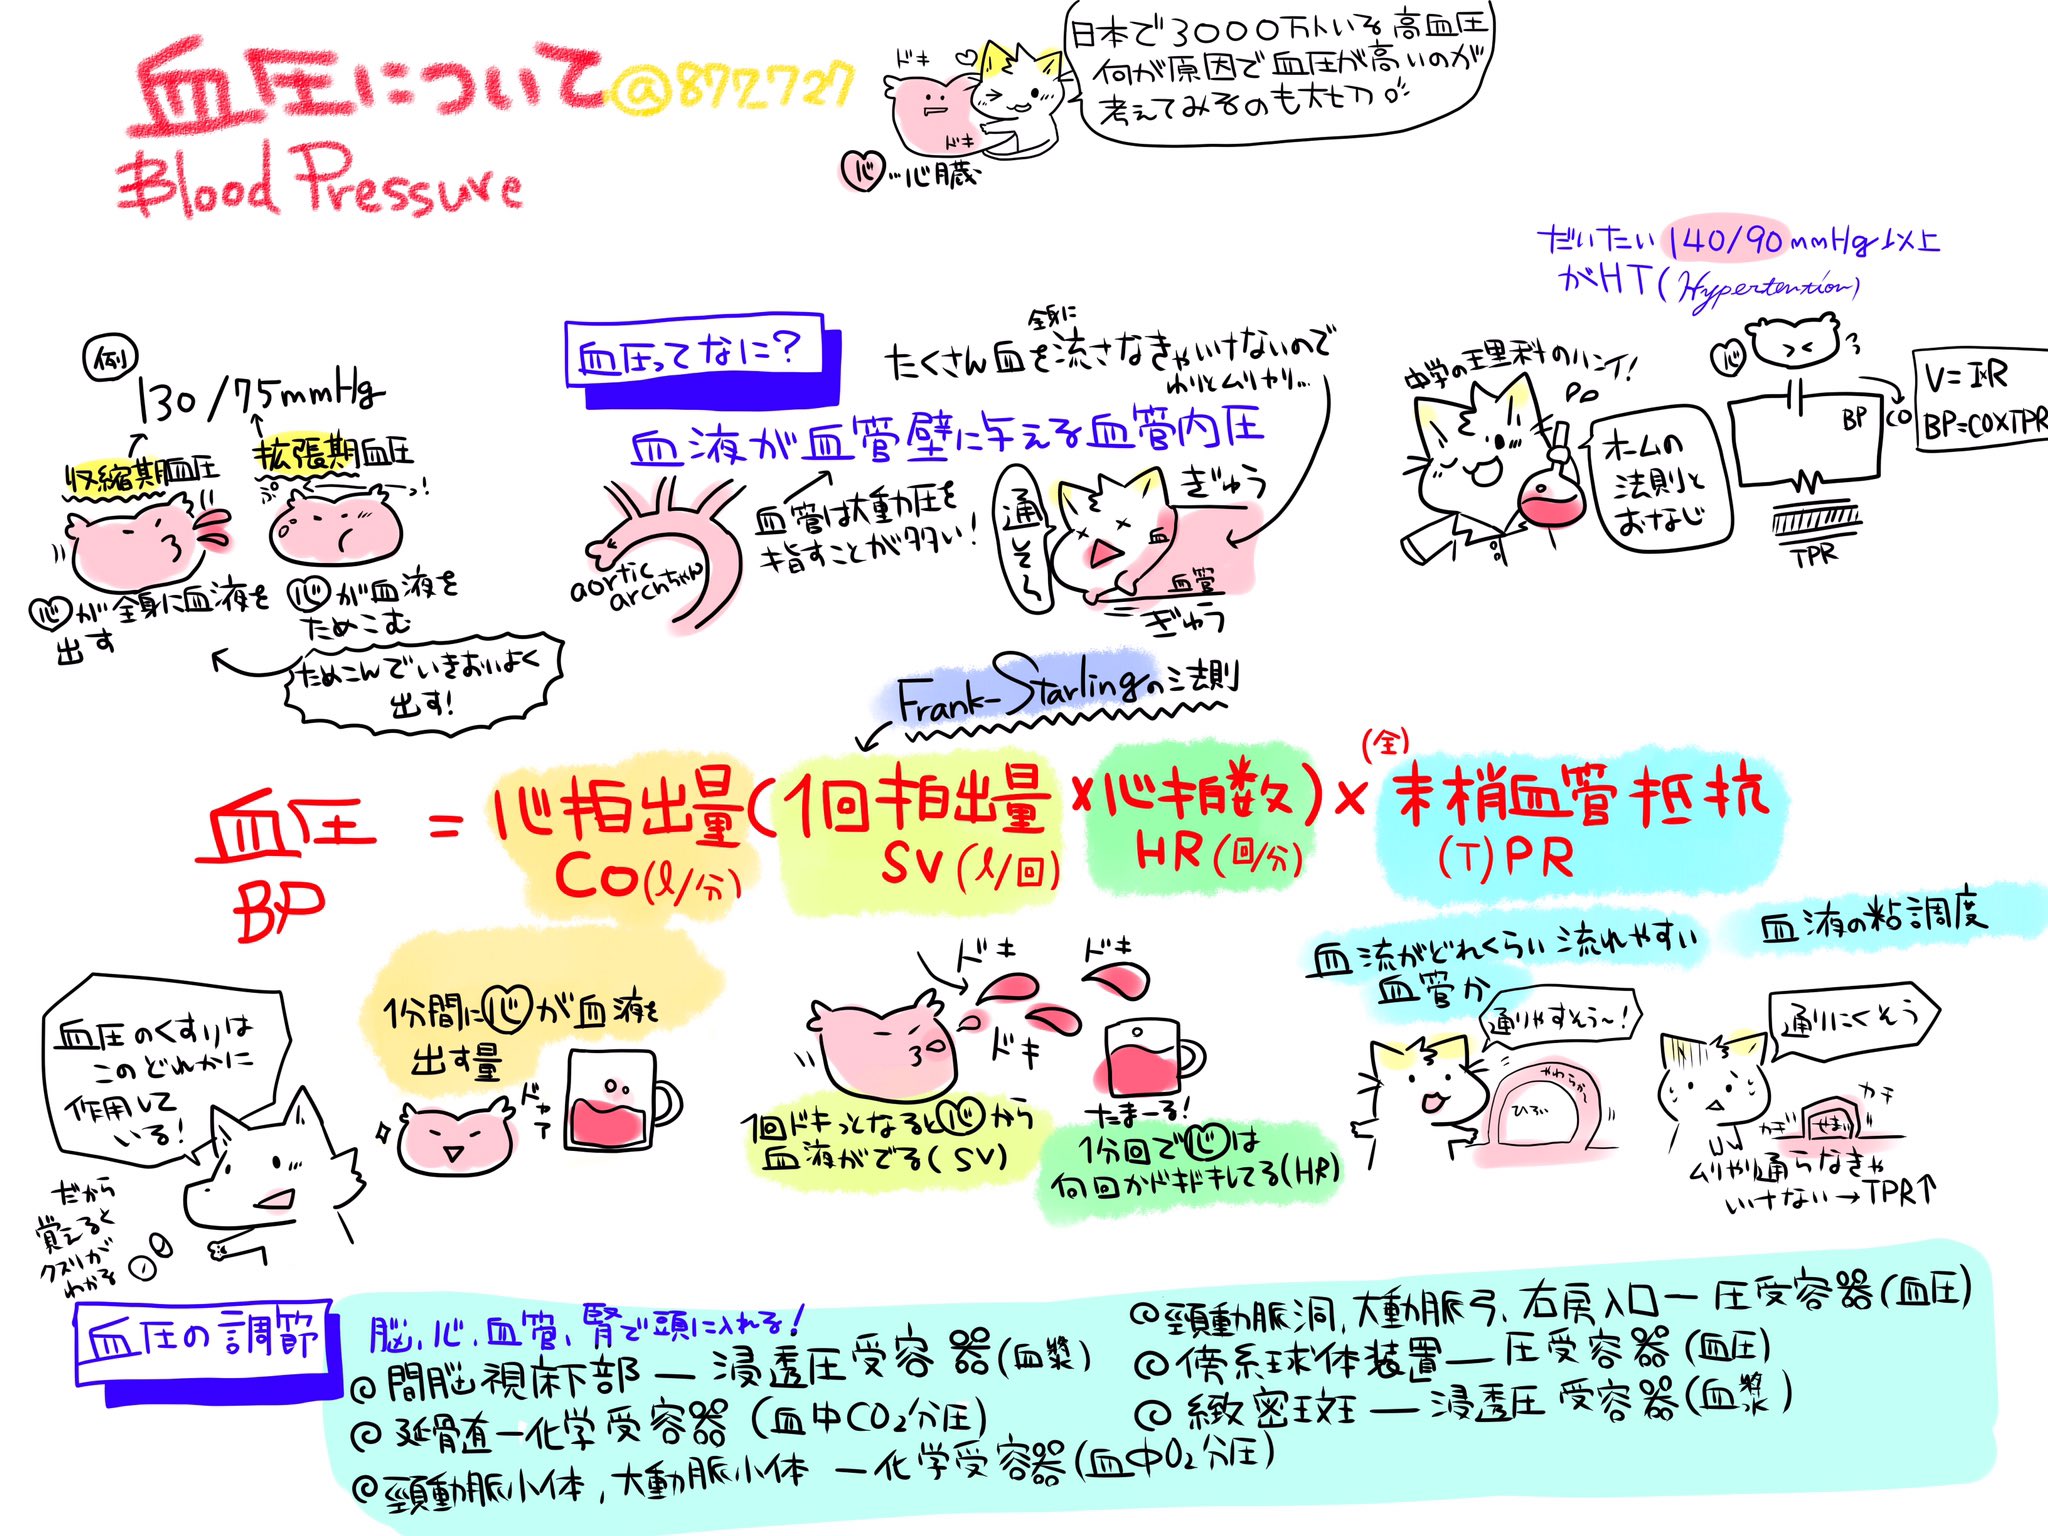 血圧について@872727
Blood Pressure
ドキ
ドキ
心…心臓
日本で3000万人いる高血圧
何が原因で血圧が高いのが
考えてみるのも大切。
だいたい140/90mmHg以上
がHT(Hypertention)
例
130/75mmHg
収縮期血圧
拡張期血圧
ぷくーっ!
心が全身に血液を
出す
心が血液を
ためこむ
ためこんでいきおいよく
出す!
血圧ってなに?
全身に
たくさん血を流さなきゃいけないので
わりとムリヤリ…
血液が血管壁に与える血管内圧
血管は大動圧を
指すことが多い!
aortic
archちゃん
通して〜
ぎゅう
血
血管
ぎゅう
中学の理科のハンイ!
オームの
法則と
おなじ
心
BP
CO
TPR
V=I×R
BP=CO×TPR
Frank-Starlingの法則
血圧 = 心拍出量(1回拍出量×心拍数)×(全)末梢血管抵抗
BP
CO(l/分)
SV(l/回)
HR(回/分)
(T)PR
血圧のくすりは
このどれかに
作用して
いる!
だから
覚えると
クスリが
わかる
1分間に心が血液を
出す量
ドャァ
ドキ
ドキ
ドキ
1回ドキっとなると心から
血液がでる(SV)
たまーる!
1分回で心は
何回かドキドキしてる(HR)
血流がどれくらい流れやすい
血管か
血液の粘調度
通りやすそう〜!
やわらか〜
ひろい
通りにくそう
カチ
カチ
せまい
ムリやり通らなきゃ
いけない→TPR↑
血圧の調節
脳、心、血管、腎で頭に入れる!
間脳視床下部ー浸透圧受容器(血漿)
延骨直ー化学受容器(血中CO₂分圧)
頸動脈小体,大動脈小体ー化学受容器(血中O₂分圧)
頸動脈洞,大動脈弓,右房入口ー圧受容器(血圧)
傍糸球体装置ー圧受容器(血圧)
緻密斑ー浸透圧受容器(血漿)